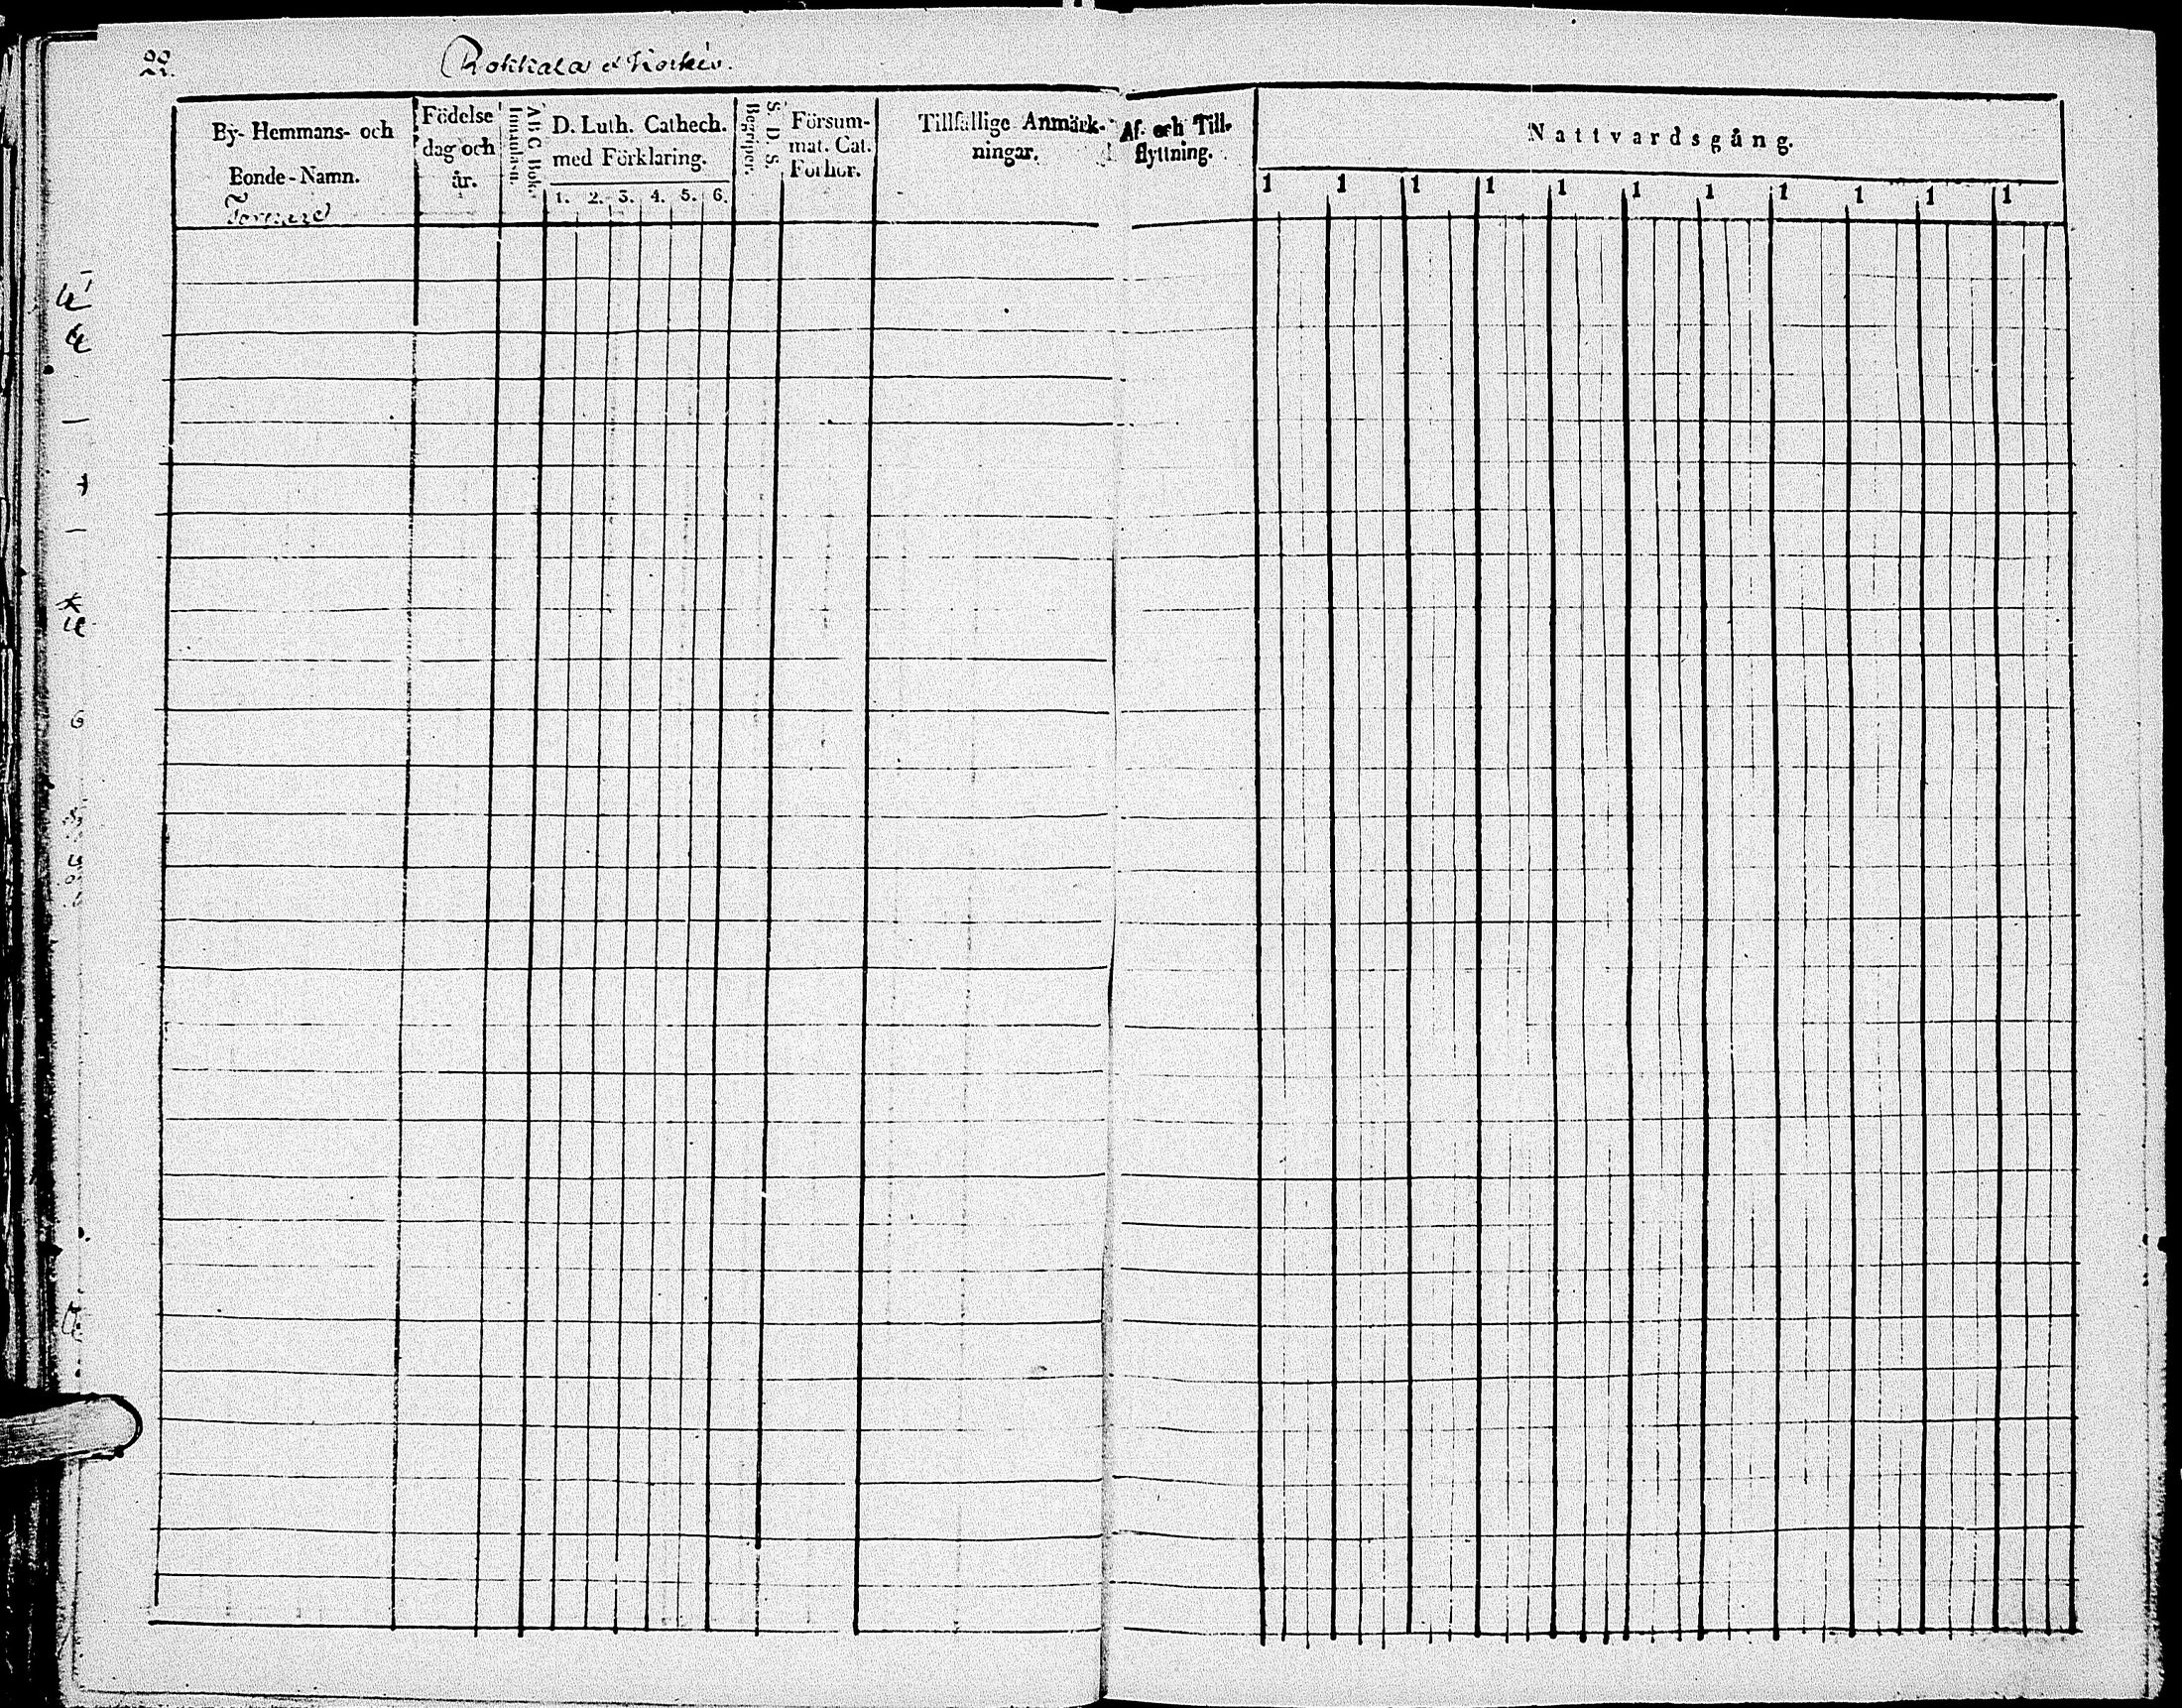 22.
Rokkala
By- Hemmans- och
Bonde-Namn.
Födelse
dag och
år.
Innanläsn.
ABC Bok.
D. Luth. Cathech.
med Förklaring.
1. 2. 3. 4. 5. 6.
S. D. S.
Begriper.
Försum-
mat. Cat.
Förhör.
Tillfällige Anmärk-
ningar.
Af- och Till-
flyttning.
Nattvardsgång.
1 1 1 1 1 1 1 1 1 1 1